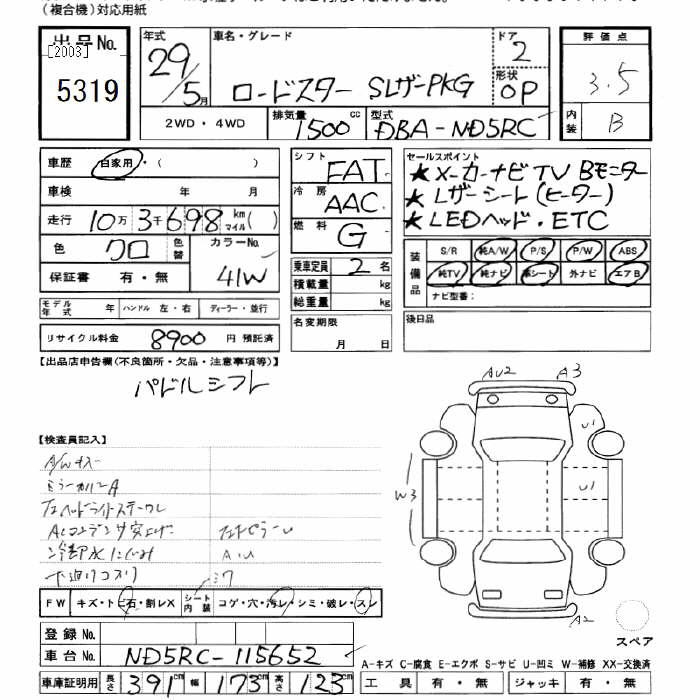 (複合機)対応用紙
出品No. [2003] 5319
年式 29/5月 車名・グレード ロードスター SレザーPKG ドア 2 形状 OP
2WD・4WD 排気量 1500cc 型式 DBA-ND5RC
評価点 3.5
内装 B
車歴 自家用・( )
車検 年 月
走行 10万3千698km マイル( )
色 クロ 色替 カラーNo. 41W
保証書 有・無
モデル年式 年 ハンドル 左・右 ディーラー・並行
リサイクル料金 8900 円 預託済
シフト FAT
冷房 AAC
燃料 G
乗車定員 2名
積載量 kg
総重量 kg
名変期限 月 日
セールスポイント
★メーカーナビTV Bモニター
★レザーシート(ヒーター)
★LEDヘッド・ETC
装備品 S/R 純A/W P/S P/W ABS
純TV 純ナビ 革シート 外ナビ エアB
ナビ型番:
後日品
【出品店申告欄(不良箇所・欠品・注意事項等)】
パドルシフト
【検査員記入】
A/Wキズ
ミラーカバーA
冷却水にじみ
下廻りコスリ
A.U
AU2 A3
U1
U1
W3
A2
スペア
FW キズ・トビ石・割レX シート内装 コゲ・穴・汚レ・シミ・破レ・スレ
登録No.
車台No. ND5RC-115652
車庫証明用 長さ 391cm 幅 173cm 高さ 123cm
A-キズ C-腐食 E-エクボ S-サビ U-凹ミ W-補修 XX-交換済
工具 有・無 ジャッキ 有・無